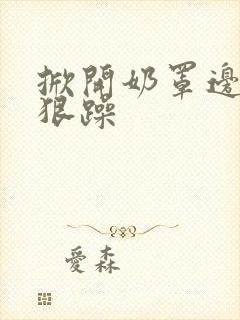 掀開奶罩邊
狠躁
愛森